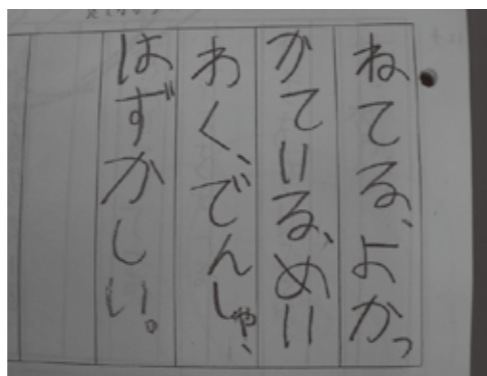 ねてる、よかっ
かている、めい
わく、でんしゃ、
はずかしい。